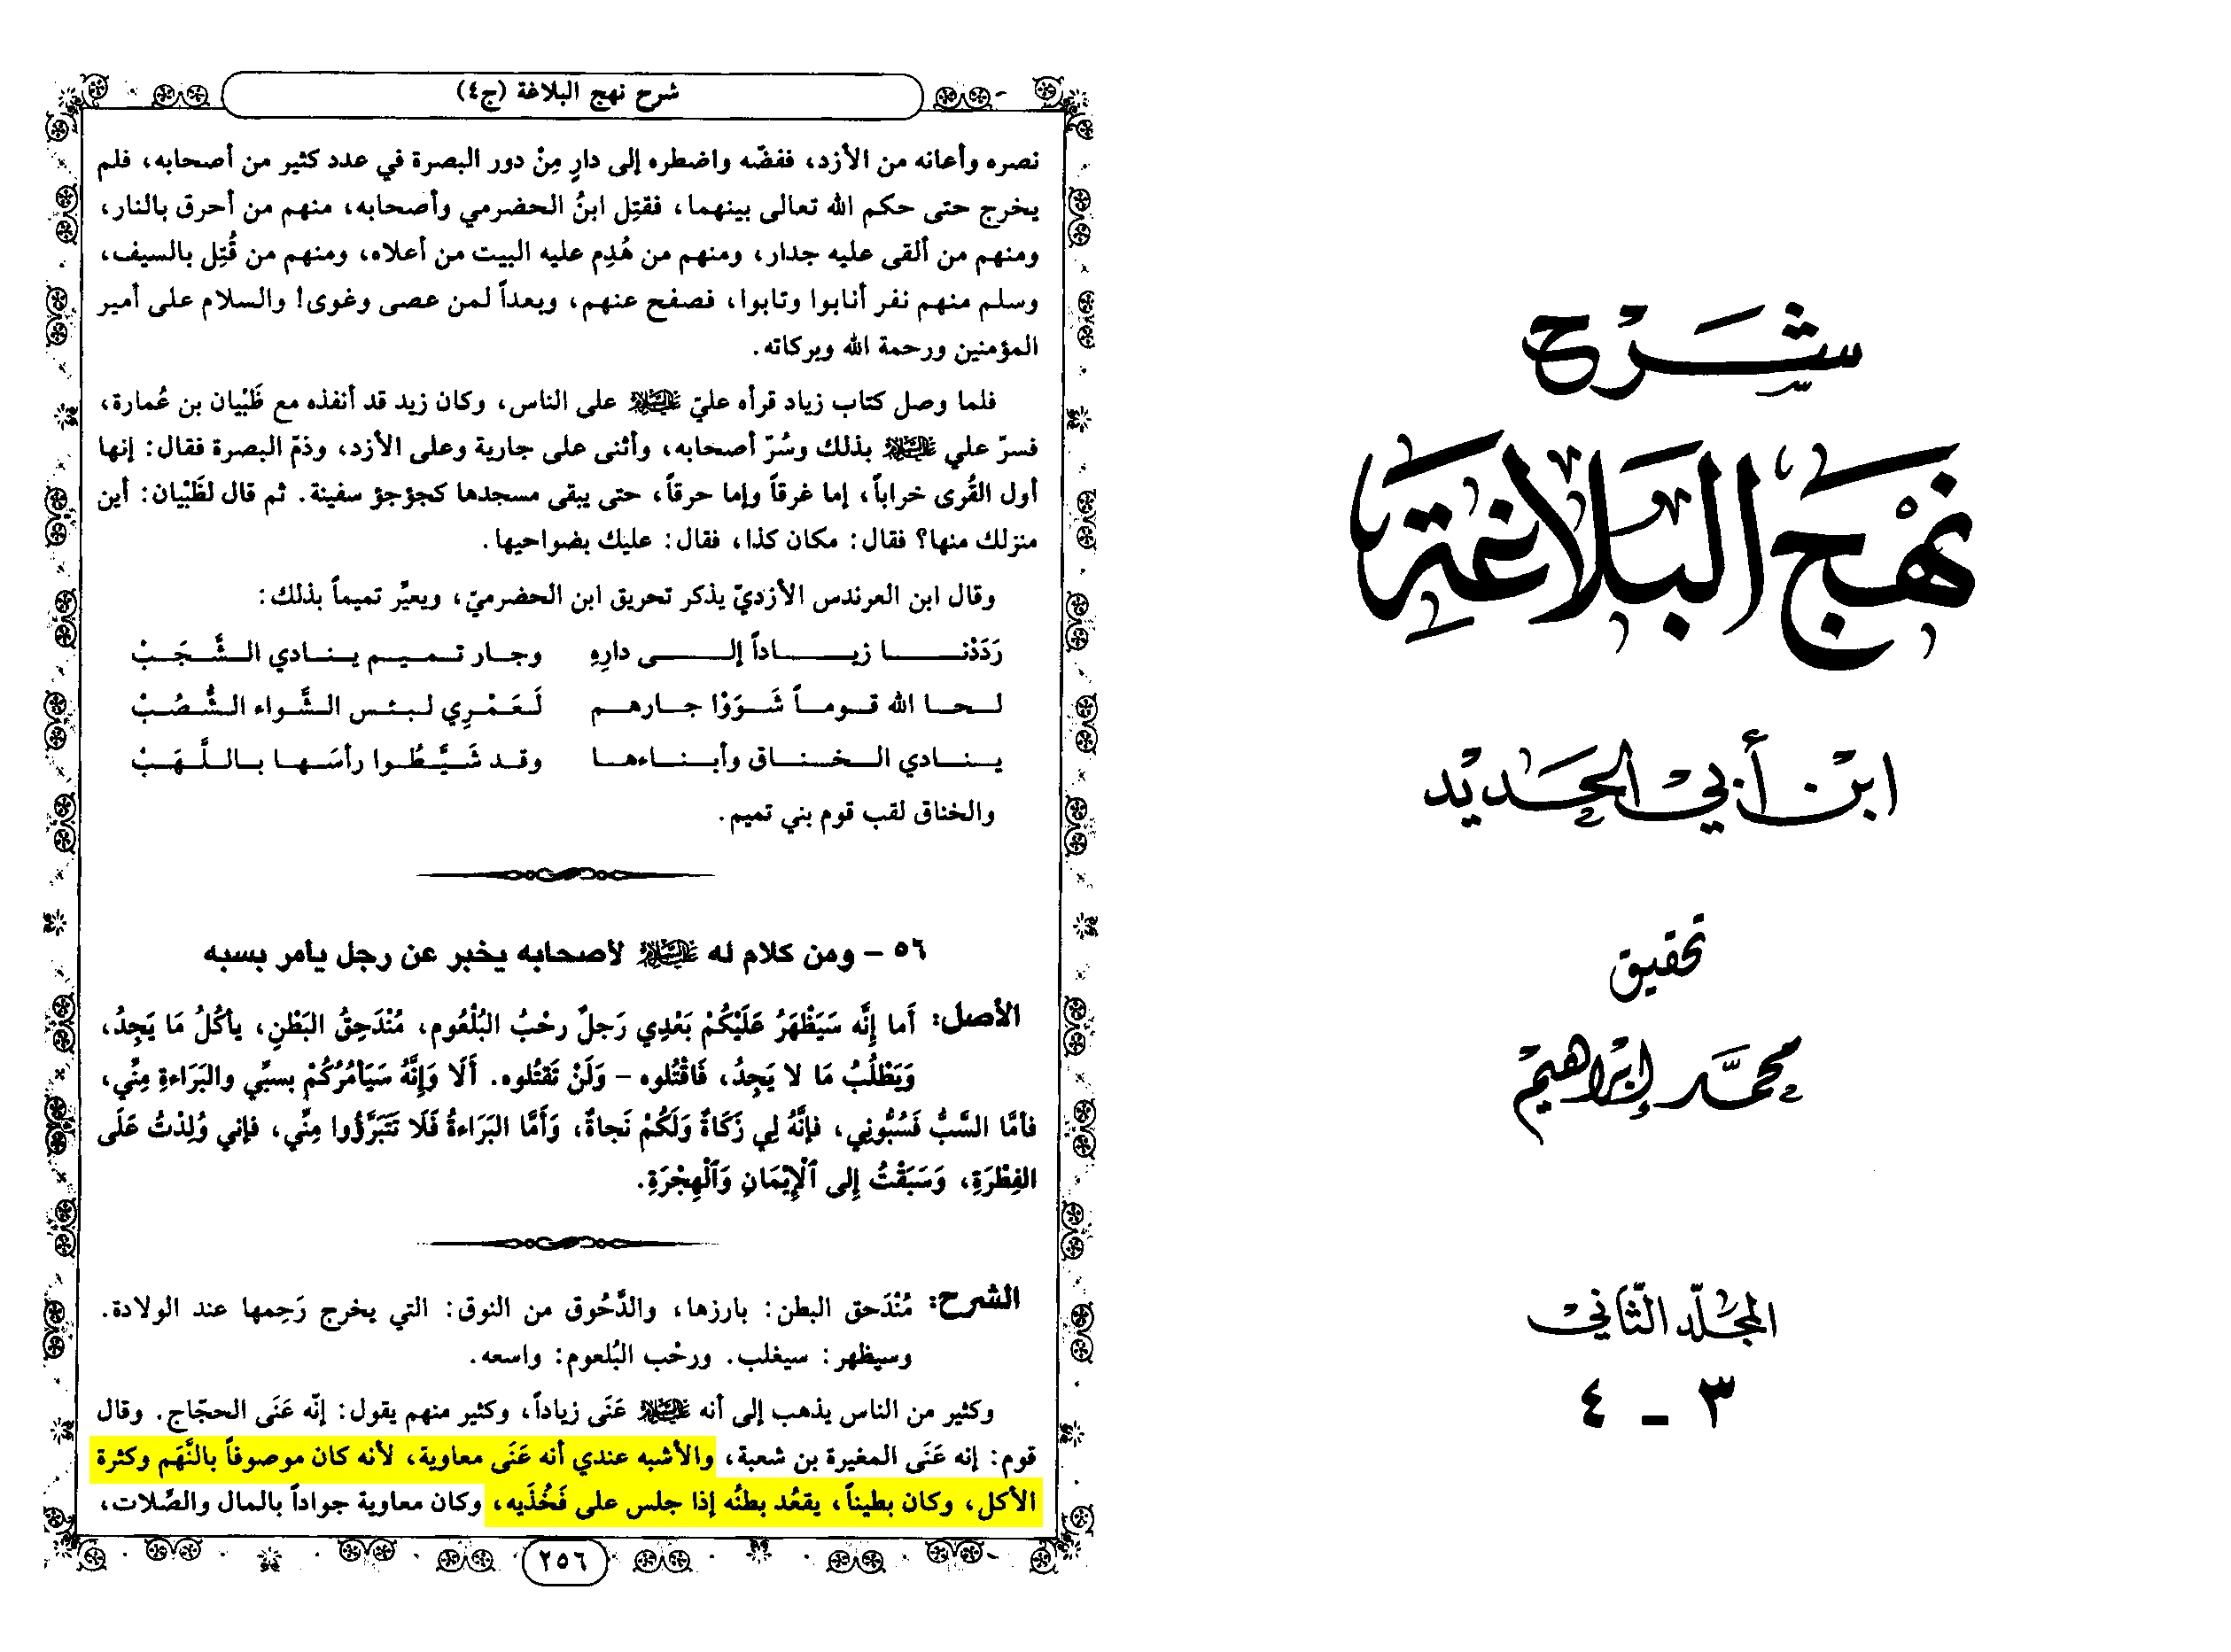 شرح
نهج البلاغة
ابن أبي الحديد
تحقيق
محمد إبراهيم
المجلد الثاني
٣ - ٤
شرح نهج البلاغة (ج٤)
نصره وأعانه من الأزد، ففضّه واضطره إلى دارٍ مِنْ دور البصرة في عدد كثير من أصحابه، فلم
يخرج حتى حكم الله تعالى بينهما، فقتِل ابنُ الحضرمي وأصحابه، منهم من أحرق بالنار،
ومنهم من ألقى عليه جدار، ومنهم من هُدِم عليه البيت من أعلاه، ومنهم من قُتِل بالسيف،
وسلم منهم نفر أنابوا وتابوا، فصفح عنهم، وبعداً لمن عصى وغوى! والسلام على أمير
المؤمنين ورحمة الله وبركاته.
فلما وصل كتاب زياد قرأه عليّ عليه السلام على الناس، وكان زيد قد أنفذه مع ظَبْيان بن عُمارة،
فسرّ علي عليه السلام بذلك وسُرّ أصحابه، وأثنى على جارية وعلى الأزد، وذمّ البصرة فقال: إنها
أول القُرى خراباً، إما غرقاً وإما حرقاً، حتى يبقى مسجدها كجؤجؤ سفينة. ثم قال لظَبْيان: أين
منزلك منها؟ فقال: مكان كذا، فقال: عليك بضواحيها.
وقال ابن العرندس الأزديّ يذكر تحريق ابن الحضرميّ، ويعيِّر تميماً بذلك:
رَدَدْنا زياداً إلى دارِهِ وجار تميم ينادي الشَّجَبْ
لحا الله قوماً شَوَوْا جارهم لَعَمْرِي لبئس الشَّواء الشُّصُبْ
ينادي الخناق وأبناءها وقد شَيَّطُوا رأسَها باللَّهَبْ
والخناق لقب قوم بني تميم.
٥٦ - ومن كلام له عليه السلام لأصحابه يخبر عن رجل يأمر بسبه
الأصل: أَما إِنَّه سَيَظْهَرُ عَلَيْكُمْ بَعْدِي رَجلٌ رحْبُ البُلْعُوم، مُنْدَحِقُ البَطْنِ، يأكُلُ مَا يَجِدُ،
وَيَطْلُبُ مَا لا يَجِدُ، فَاقْتُلوه - وَلَنْ تَقتُلوه. أَلَا وَإِنَّهُ سَيَأمُرُكُمْ بسبِّي والبَرَاءةِ مِنِّي،
فأمَّا السَّبُّ فَسُبُّونِي، فإنَّهُ لِي زَكَاةٌ وَلَكُمْ نَجاةٌ، وَأَمَّا البَرَاءةُ فَلَا تَتَبَرَّؤُوا مِنِّي، فإني وُلِدْتُ عَلَى
الفِطْرَةِ، وَسَبَقْتُ إِلى ٱلْإِيْمَانِ وَٱلْهِجْرَةِ.
الشرح: مُنْدَحق البطن: بارزها، والدَّحُوق من النوق: التي يخرج رَحِمها عند الولادة.
وسيظهر: سيغلب. ورحْب البُلعوم: واسعه.
وكثير من الناس يذهب إلى أنه عليه السلام عَنَى زياداً، وكثير منهم يقول: إنّه عَنَى الحجّاج. وقال
قوم: إنه عَنَى المغيرة بن شعبة، والأشبه عندي أنه عَنَى معاوية، لأنه كان موصوفاً بالنَّهَم وكثرة
الأكل، وكان بطيناً، يقعُد بطنُه إذا جلس على فَخُذَيه، وكان معاوية جواداً بالمال والصِّلات،
٢٥٦